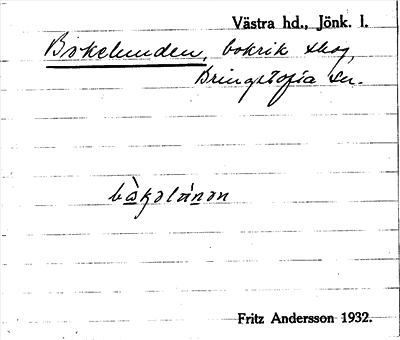 Västra hd., Jönk. l.
Bokelunden, bokrik skog,
Bringetofta sn.
Fritz Andersson 1932.